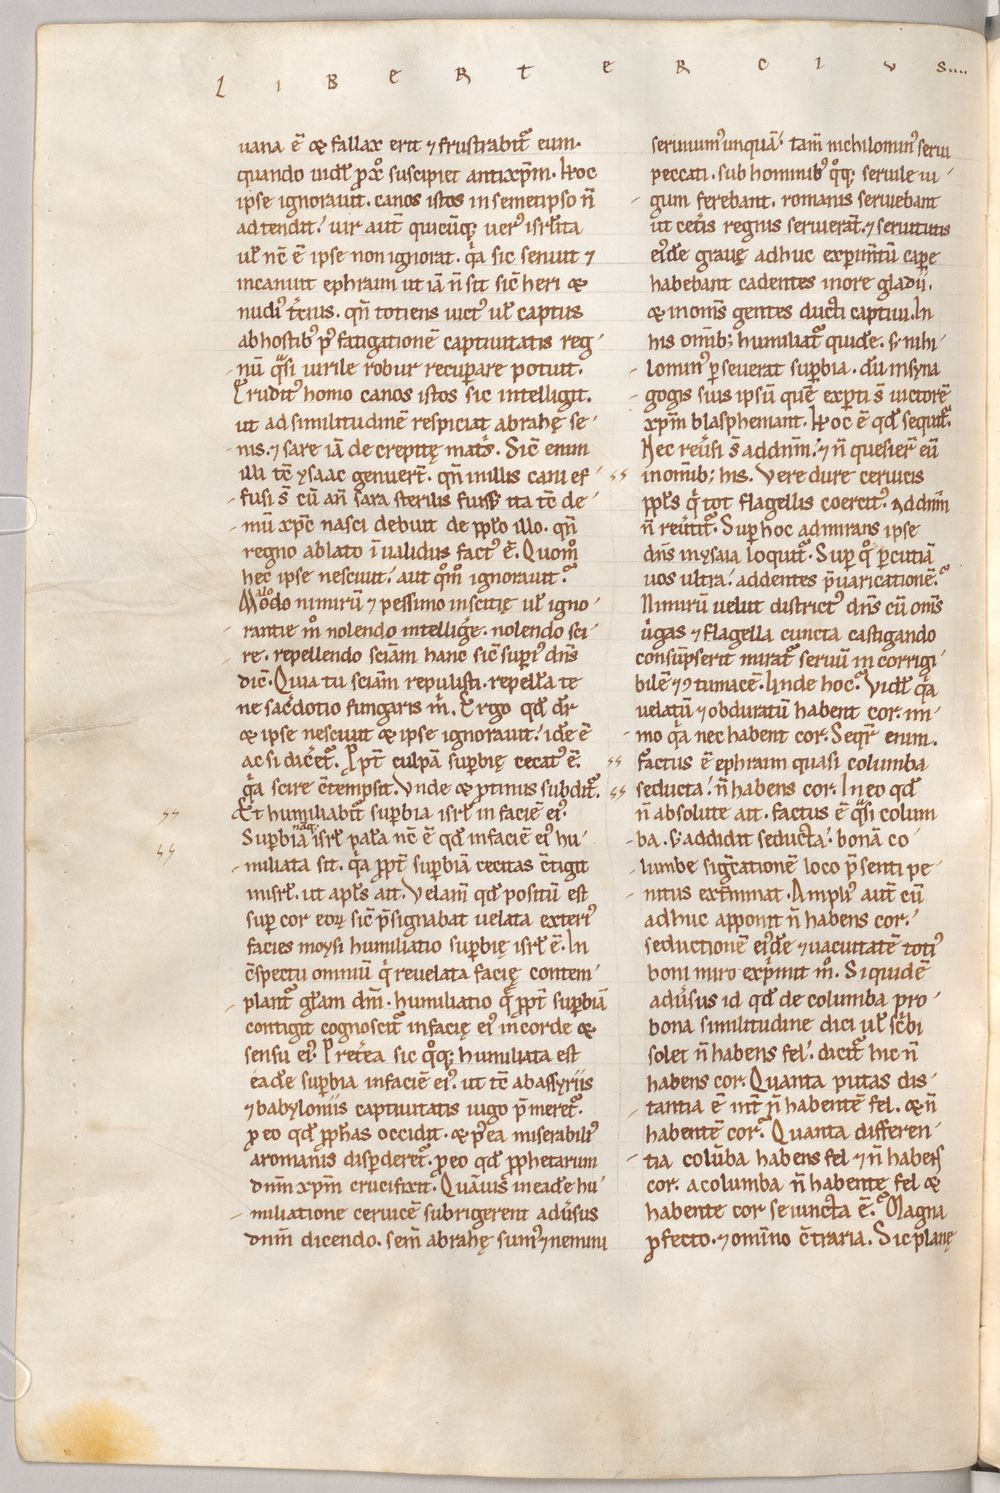 LIBER TERCIUS....
uana ē & fallax erit ⁊ frustrabit᷒ eum.
quando uidel͛ p̱xͦ suscipiet antixp̄m. Hoc
ipse ignorauit. canos istos in semetipso n̄
adtendit. uir aut̄ quicūq; uer᷒ isrl̄ita
ul̄ nc̄ ē ipse non ignorat. qͣa sic senuit ⁊
incanuit ephraim ut iā n̄ sit sic̄ heri &
nudi᷒ tcius. qn̄ totiens uict᷒ ul̄ captus
ab hostib᷒ p᷒ fatigationē captiuitatis reg
nū qͣsi uirile robur recuperare potuit.
Erudit᷒ homo canos istos sic intelligit.
ut ad similitudinē respiciat abrahę se
nis. ⁊ sare iā decrepitę mat͛s. Sic̄ enim
illi tc̄ ysaac genuer̄t. qn̄ in illis cani ef
fusi s̄ cū an̄ sara sterilis fuiss; ita tc̄ de
mū xp̄c nasci debuit de pp̄lo illo. qn̄
regno ablato īualidus fact᷒ ē. Quomͦ
hec ipse nesciuit. aut qͦmͦ ignorauit.
Malo modo nimirū ⁊ pessimo inscitię ul̄ igno
rantię mͦ nolendo intellig͛e. nolendo sci
re. repellendo sciām hanc sic̄ superi᷒ dn̄s
dic̄. Quia tu sciām repulisti. repellā te
ne sac͛dotio fungaris m͛. Ergo qd̄ dr̄
& ipse nesciuit & ipse ignorauit. id ē
ac si dic͛et᷒. Ppt̄ culpā supbię cecat᷒ ē.
qͣa scire c̄tempsit. Unde & p̱tinus subdit᷒.
Et humiliabit᷒ supbia isrl̄ in faciē ei᷒.
Supbia naq; isrl̄ palā nc̄ ē qd̄ in faciē ei᷒ hu
miliata sit. qͣa p̱pt̄ supbiā cecitas c̄tigit
in isrl̄. ut apl̄s ait. Velam̄ qd̄ positū est
sup cor eoꝝ sic̄ p̄signabat uelata exteri᷒
facies moysi humiliatio supbię isrl̄ ē. In
c̄spectu omniū qͥ reuelata facię contem
plant᷒ gl̄am dn̄i. humiliatio q̄ p̱pt̄ supbiā
contigit cognoscit᷒ in facię ei᷒ in corde &
sensu ei᷒. Pret͛ea sic qͦq; humiliata est
eadē supbia in faciē ei᷒. ut tc̄ ab assyriis
⁊ babyloniis captiuitatis iugo p̄meret᷒.
p̱ eo qd̄ pp̱has occidit. & p᷒ea miserabili᷒
a romanis disperderet᷒. p̱ eo qd̄ pp̱hetarum
dnm̄ xp̄m crucifixit. Quāuis in eadē hu
miliatione ceruicē subrigerent adūsus
dnm̄ dicendo. sem̄ abrahę sum᷒ ⁊ nemini
seruiuim᷒ unquā. tam̄ nichilomin᷒ serui
peccati. sub hominib᷒ qͦq; seruile iu
gum ferebant. romanis seruiebant
ut cet͛is regnis seruierāt. ⁊ seruitutis
ei᷒dē grauę adhuc experimtū cape
habebant cadentes in ore gladii.
& in omn̄s gentes ducti captiui. In
his omīb; humiliat᷒ quidē. s; nihi
lomin᷒ pseuerat supbia. dū in syna
gogis suis ipsū quē experti s̄ uictorē
xp̄m blasphemant. Hoc ē qd̄ sequit᷒.
Nec reūsi s̄ ad dnm̄. ⁊ n̄ quesier̄ eū
in omīb; his. Vere dure ceruicis
pp̄ls qͥ tot flagellis coercit᷒. ad dnm̄
n̄ reūtit᷒. Sup hoc admirans ipse
dn̄s in ysaia loquit᷒. Sup qͦ pcutiā
uos ultra. addentes p̄uaricationē.
Nimirū uelut district᷒ dn̄s cū om̄s
uͥgas ⁊ flagella cuncta castigando
consūpserit mirat᷒ seruū incorrigi
bilē ⁊ ꝯtumacē. Unde hoc. Videl͛ qͣa
uelatū ⁊ obduratū habent cor. im
mo qͣa nec habent cor. Seqr̄ enim.
Factus ē ephraim quasi columba
seducta. n̄ habens cor. In eo qd̄
n̄ absolute ait. factus ē qͣsi colum
ba. s; addidit seducta. bonā co
lumbe sig͛catione loco p̄senti pe
nitus ext͛minat. Ampli᷒ aut̄ cū
adhuc apponit n̄ habens cor.
seductionē ei᷒dē ⁊ uacuitatē toti᷒
boni miro expͥmit mͦ. Siquidē
adūsus id qd̄ de columba pro
bona similitudine dici ul̄ sc͛bi
solet n̄ habens fel. dicit᷒ hic n̄
habens cor. Quanta putas dis
tantia ē int͛ n̄ habentē fel. & n̄
habentē cor. Quanta differen
tia colūba habens fel ⁊ n̄ habens
cor. a columba n̄ habente fel &
habente cor seiuncta ē. Magna
p̱fecto. ⁊ omīno c̄traria. Sic planę